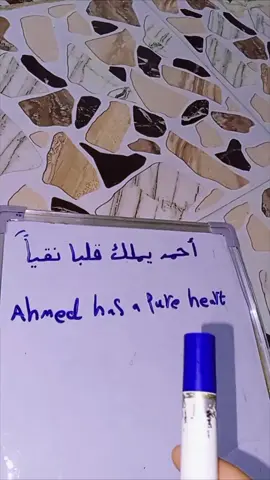 أحمد يملك قلبا نقياً
Ahmed has a Pure heart